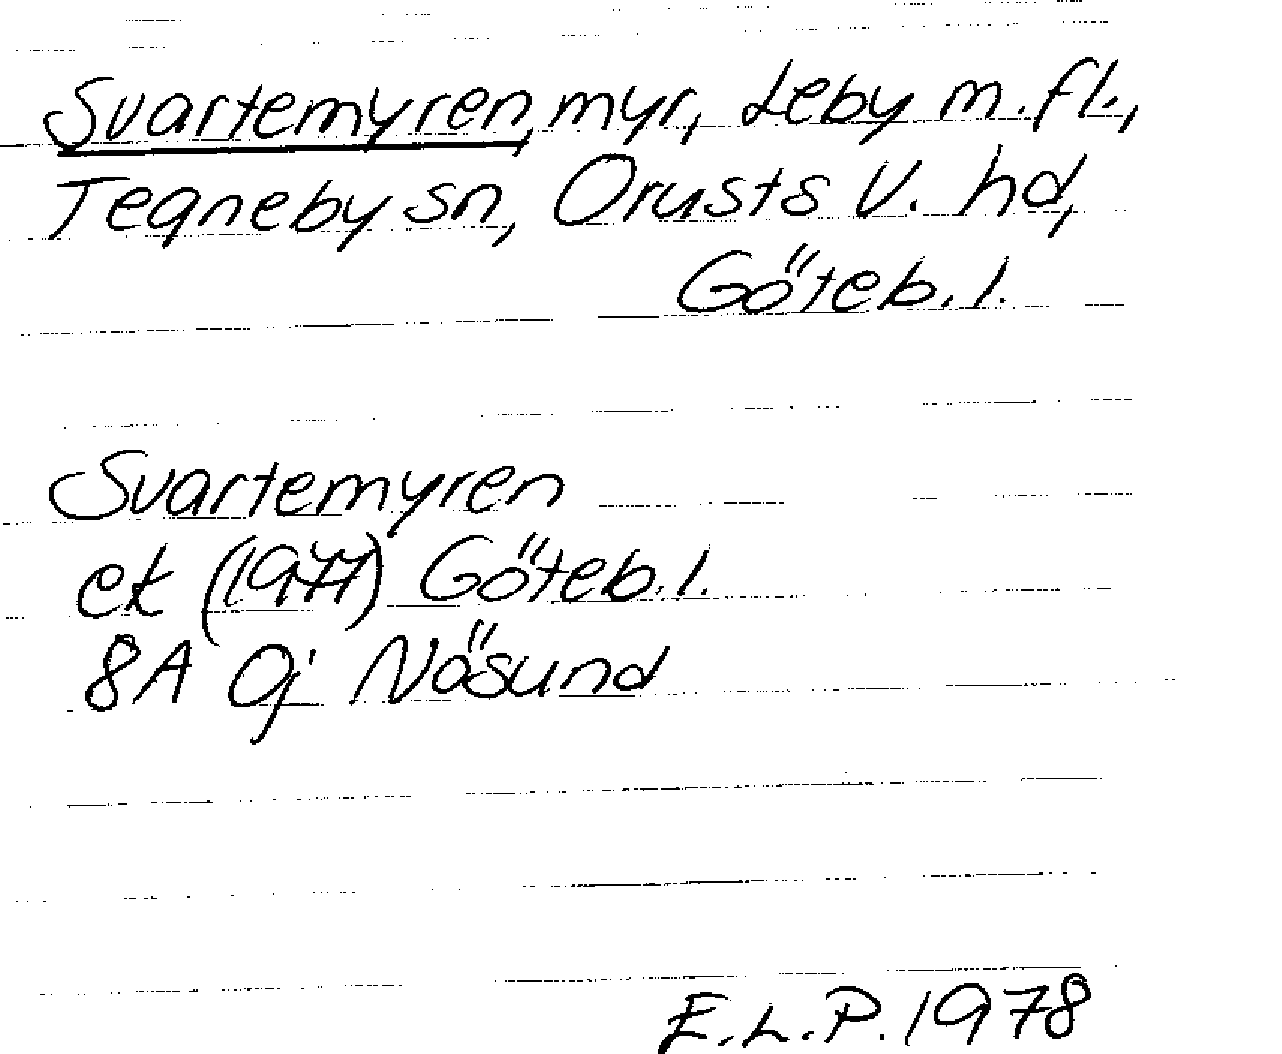 Svartemyren, myr, Leby m.fl.,
Tegneby sn, Orusts V. hd,
Göteb. l.
Svartemyren
ek (1977) Göteb. l.
8A 0j Nösund
E.L.P. 1978